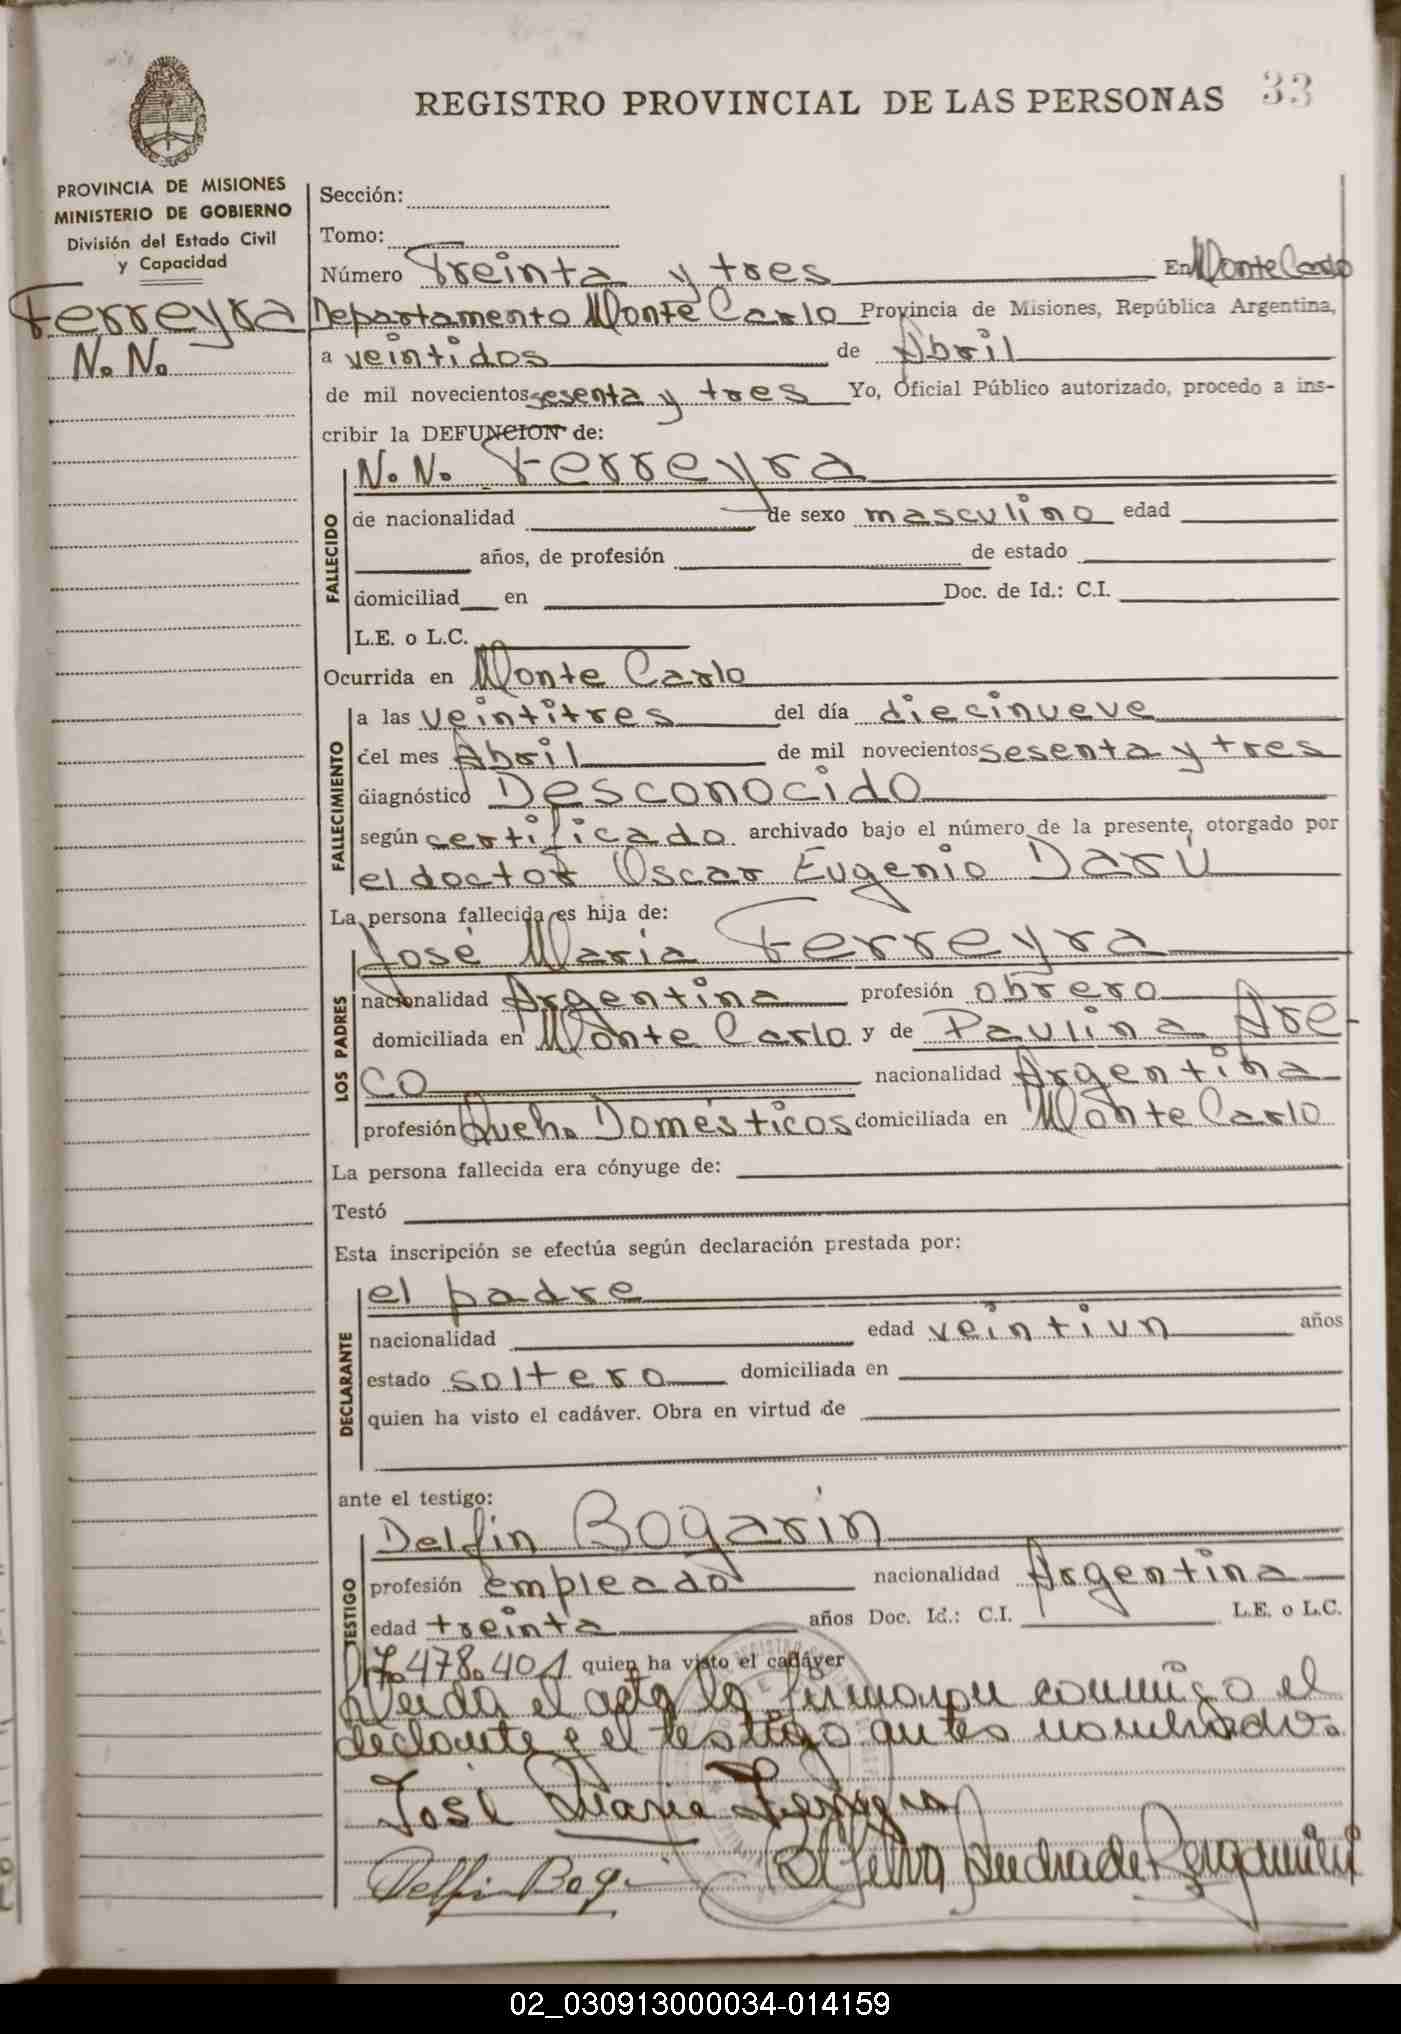 REGISTRO PROVINCIAL DE LAS PERSONAS 33
PROVINCIA DE MISIONES
MINISTERIO DE GOBIERNO
División del Estado Civil
y Capacidad
Ferreyra
N. N.
Sección:
Tomo:
Número Treinta y tres En Monte Carlo
Departamento Monte Carlo Provincia de Misiones, República Argentina,
a veintidos de Abril
de mil novecientos sesenta y tres Yo, Oficial Público autorizado, procedo a ins-
cribir la DEFUNCION de:
N. N. Ferreyra
FALLECIDO
de nacionalidad de sexo masculino edad
años, de profesión de estado
domiciliad en Doc. de Id.: C.I.
L.E. o L.C.
Ocurrida en Monte Carlo
FALLECIMIENTO
a las veintitres del día diecinueve
del mes Abril de mil novecientos sesenta y tres
diagnóstico Desconocido
según certificado archivado bajo el número de la presente, otorgado por
el doctor Oscar Eugenio Darú
La persona fallecida es hija de:
José Maria Ferreyra
LOS PADRES
nacionalidad Argentina profesión obrero
domiciliada en Monte Carlo y de Paulina Are-
co nacionalidad Argentina
profesión Queh. Domésticos domiciliada en Monte Carlo
La persona fallecida era cónyuge de:
Testó
Esta inscripción se efectúa según declaración prestada por:
el padre
DECLARANTE
nacionalidad edad veintiun años
estado soltero domiciliada en
quien ha visto el cadáver. Obra en virtud de
ante el testigo:
Delfin Bogarin
TESTIGO
profesión empleado nacionalidad Argentina
edad treinta años Doc. Id.: C.I. L.E. o L.C.
7.478.401 quien ha visto el cadáver
Leida el acta la firmaron conmigo el
declarante y el testigo antes nombrado.
José Maria Ferreyra
Delfin Bog
02_030913000034-014159